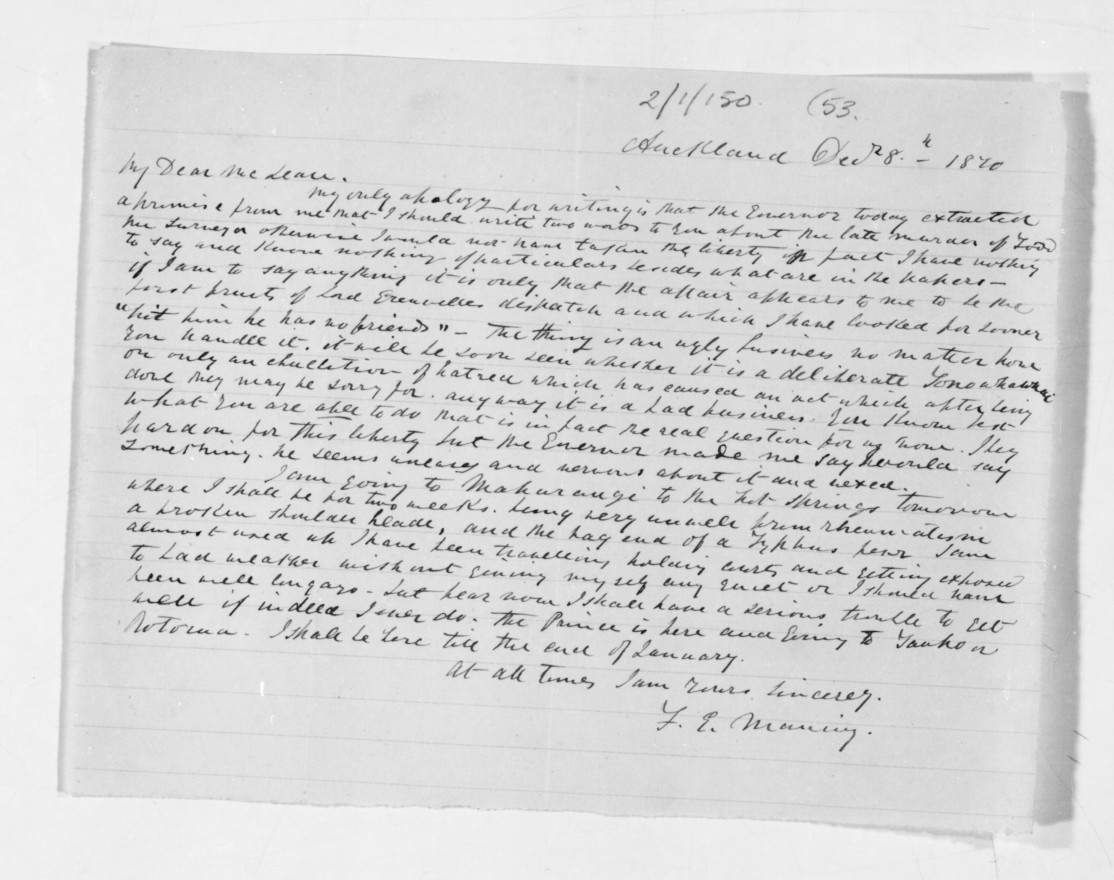 2/1/150. (53.
Auckland Decr 8.th 1870
My Dear McLean.
My only apology for writing is that the Governor today extracted
a promise from me that I should write two words to you about the late murder of Todd
the Surveyor otherwise I would not have taken the liberty in fact I have nothing
to say and know nothing of particulars besides what are in the papers –
if I am to say anything it is only that the affair appears to me to be the
first fruits of Lord Grenvilles dispatch and which I have looked for sooner
"hit him he has no friends" – The thing is an ugly business no matter how
you handle it. it will be soon seen whether it is a deliberate
or only an ebullition of hatred which has caused an act which after being
done they may be sorry for. any way it is a bad business. You Know best
what you are able to do that is in fact the real question for us now. I beg
pardon for this liberty but the Governor made me say I would say
something. he seems uneasy and nervous about it and vexed.
I am going to Mahurangi to the hot springs tomorrow
where I shall be for two weeks. being very unwell from rheumatism
a broken shoulder blade, and the fag end of a Typhus fever I am
almost used up I have been travelling holding courts and getting exposed
to bad weather without giving myself any quiet or I should have
been well long ago – but fear now I shall have a serious trouble to get
well if indeed I ever do. The Prince is here and Going to Taupo or
Rotorua. I shall be here till the end of January.
At all times I am yours sincerey.
F. E. Maning.